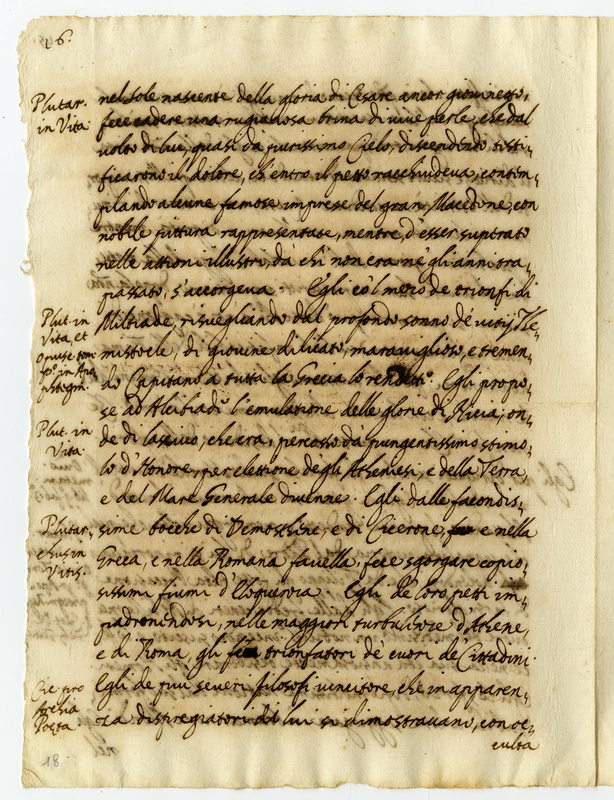 26.
nel sole nascente della gloria di Cesare ancor giovinetto,
Plutar. in Vita
fece cadere una rugiadosa brina di vive perle, che dal
volto di lui, quasi da purissimo Cielo, discendendo testi-
ficarono il dolore, ch'entro il petto racchiudeva, contem-
plando alcune famose imprese del gran Macedone, con
nobile pittura rappresentate, mentre, d'esser superato
nelle attioni illustri, da chi non era nè gli anni tra-
passato, s'accorgeva. Egli co'l mezo de trionfi di
Plut. in Vita, et
Milziade, risvegliando dal profondo sonno de' vitij The-
mistocle, di giovine dilicato, maraviglioso, e tremen-
do Capitano à tutta la Grecia lo rendette. Egli propo-
se ad Alcibiade l'emulatione delle glorie di Nicia, on-
Plut. in Vita.
de di lascivo, che era, percosso da pungentissimo stimo-
lo d'Honore, per elettione degli Atheniesi, e della Terra,
e del Mare Generale divenne. Egli dalle facondis-
Plutar-
chus in
Vitis.
sime bocche di Demosthene, e di Cicerone, e nella
Greca, e nella Romana favella, fece sgorgare copio-
sissimi fiumi d'Eloquenza. Egli de loro petti im-
padronendosi, nelle maggiori turbulenze d'Athene,
e di Roma, gli fece trionfatori de' cuori de Cittadini.
Egli de più severi filosofi vincitore, che in apparen-
Poeta
za dispregiatori di lui si dimostravano, con oc-
culta
18